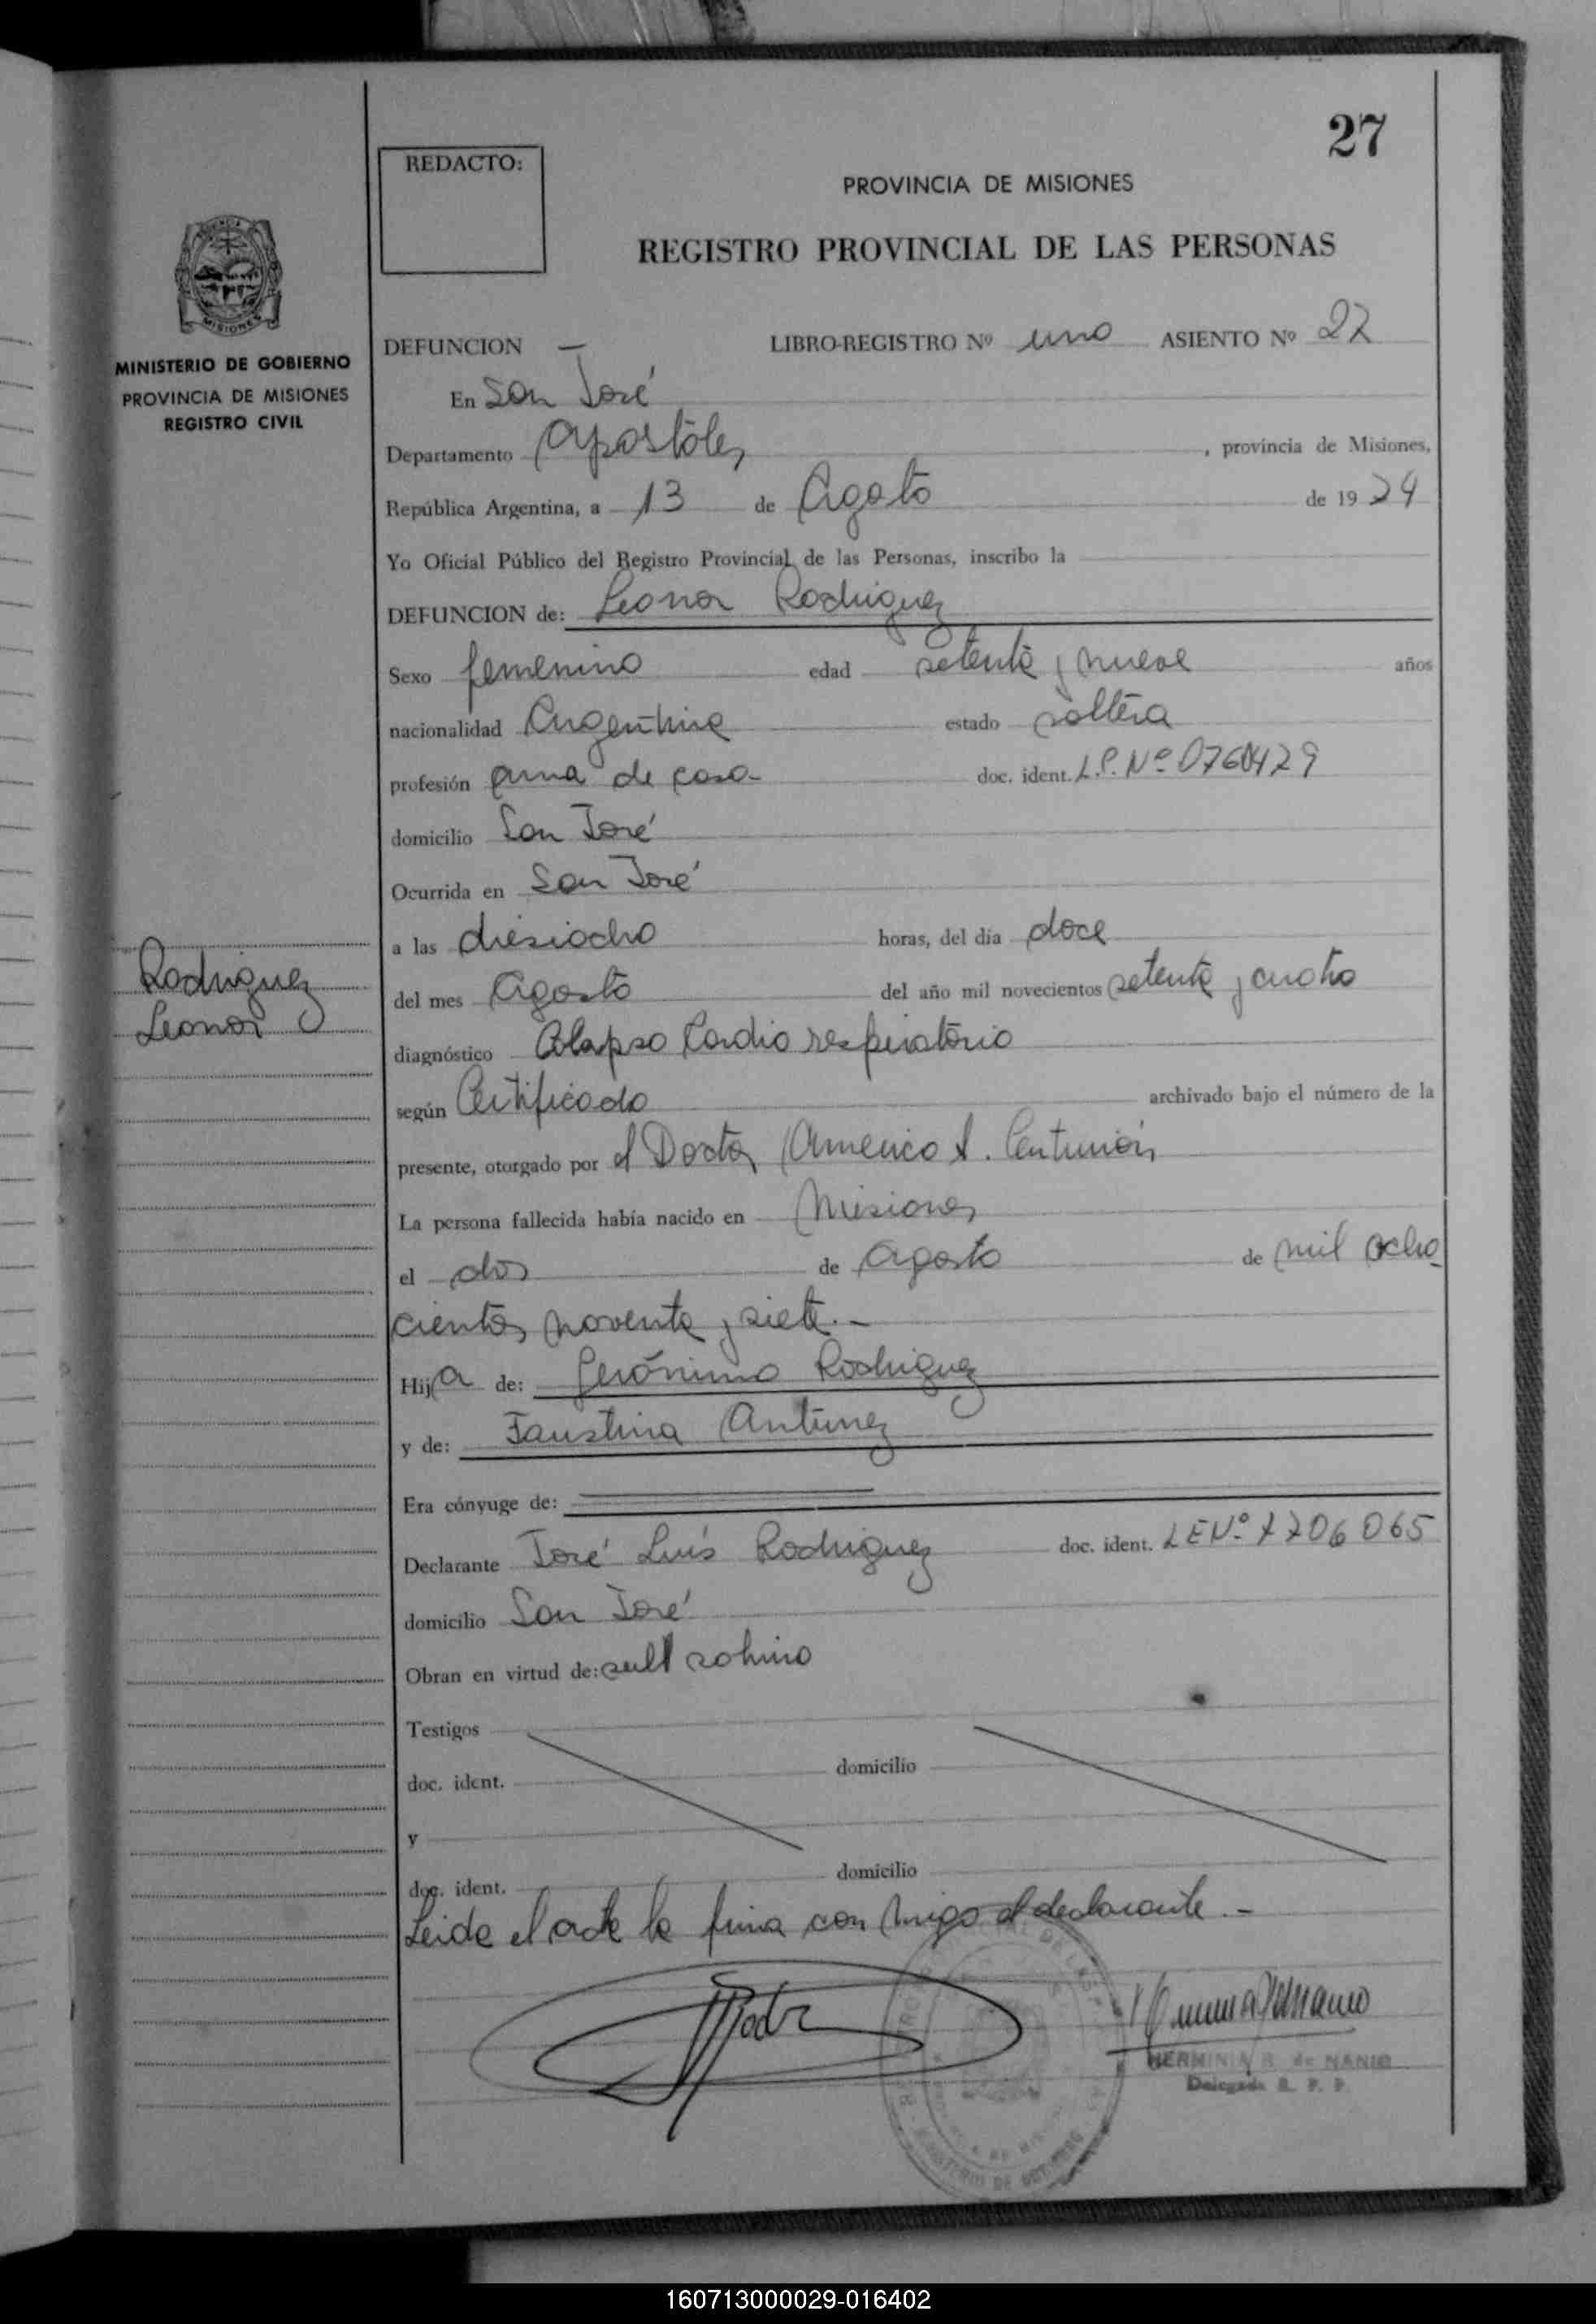 27
REDACTO:
PROVINCIA DE MISIONES
REGISTRO PROVINCIAL DE LAS PERSONAS
MISIONES
MINISTERIO DE GOBIERNO
PROVINCIA DE MISIONES
REGISTRO CIVIL
DEFUNCION — LIBRO-REGISTRO Nº uno ASIENTO Nº 27
En San José
Departamento Apostoles, provincia de Misiones,
República Argentina, a 13 de Agosto de 1974
Yo Oficial Público del Registro Provincial de las Personas, inscribo la
DEFUNCION de: Leonor Rodriguez
Sexo femenino edad setenta y nueve años
nacionalidad Argentina estado soltera
profesión ama de casa- doc. ident. L.C. Nº
domicilio San José
Ocurrida en San José
a las diesiocho horas, del día doce
Rodriguez
Leonor
del mes Agosto del año mil novecientos setenta y cuatro
diagnóstico Colapso Cardio respiratorio
según Certificado archivado bajo el número de la
presente, otorgado por el Doctor Americo A. Centurión
La persona fallecida había nacido en Misiones
el dos de agosto de mil ocho
cientos noventa y siete.-
Hija de: Gerónimo Rodriguez
y de: Faustina Antunez
Era cónyuge de:
Declarante José Luis Rodriguez doc. ident. LE Nº 7706065
domicilio San José
Obran en virtud de: ser sobrino
Testigos
doc. ident. domicilio
y
doc. ident. domicilio
Leida el acta la firma con migo el declarante.-
HERMINIA R. de NANIO
Delegada R. P. P.
160713000029-016402